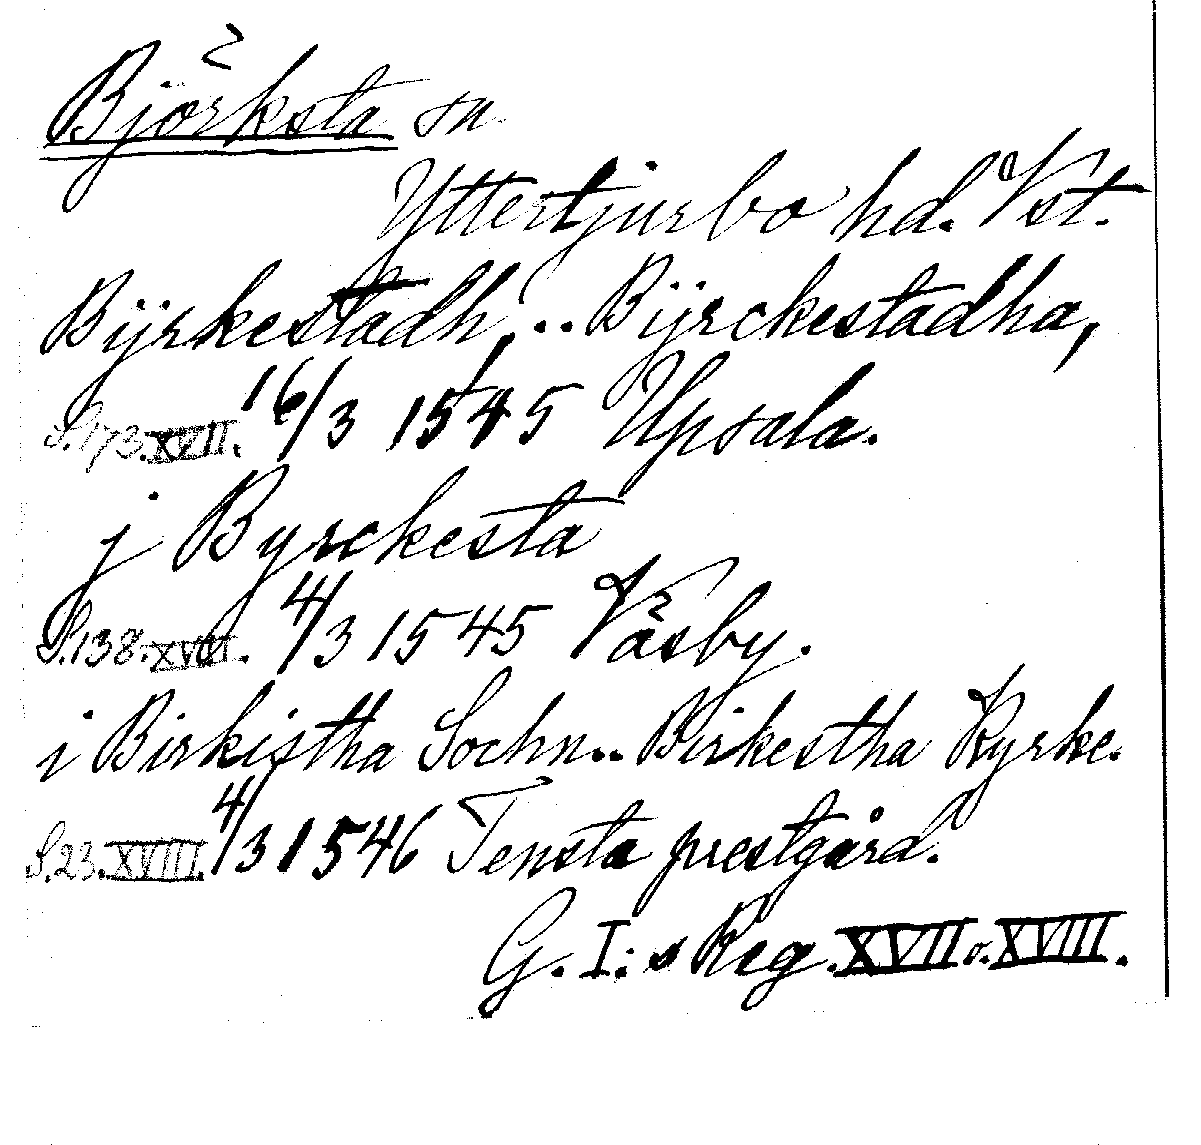 Björksta sn
Yttertjurbo hd. Vst.
Bÿrkestadh, .. Bÿrckestadha,
S. 173. XVII. 16/3 1545 Upsala.
j Byrckesta
S. 138. XVII. 4/3 1545 Väsby.
i Birkistha Sochn .. Birkestha Kyrke.
S. 23. XVIII. 4/3 1546 Tensta prestgård.
G. I:s Reg. XVII o. XVIII.